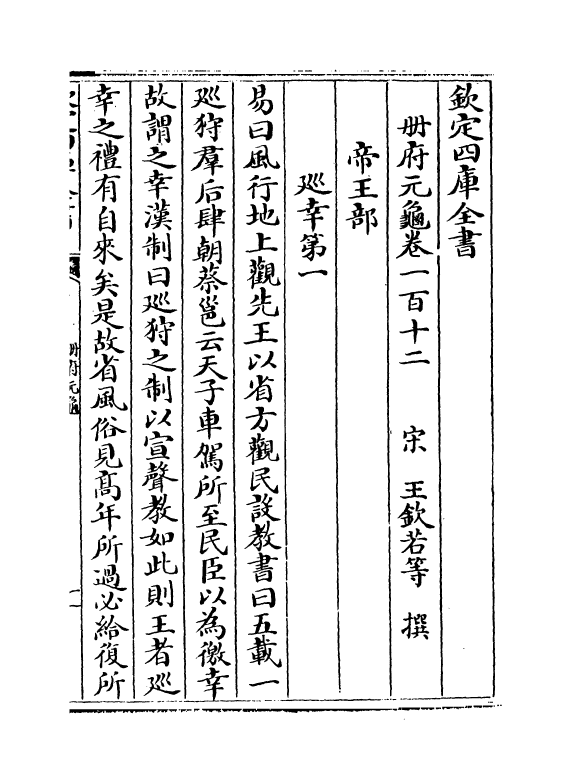 欽定四庫全書
冊府元龜卷一百十二　宋　王欽若等　撰
帝王部
廵幸第一
易曰風行地上觀先王以省方觀民設教書曰五載一
廵狩羣后肆朝蔡邕云天子車駕所至民臣以為徼幸
故謂之幸漢制曰廵狩之制以宣聲教如此則王者廵
幸之禮有自來矣是故省風俗見高年所過必給復所
冊府元龜
一